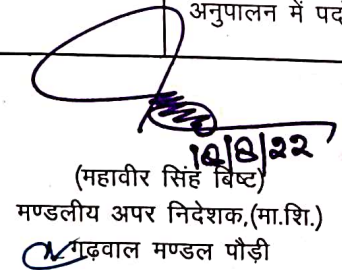 अनुपालन में पद
(महावीर सिंह बिष्ट)
मण्डलीय अपर निदेशक,(मा.शि.)
गढ़वाल मण्डल पौड़ी